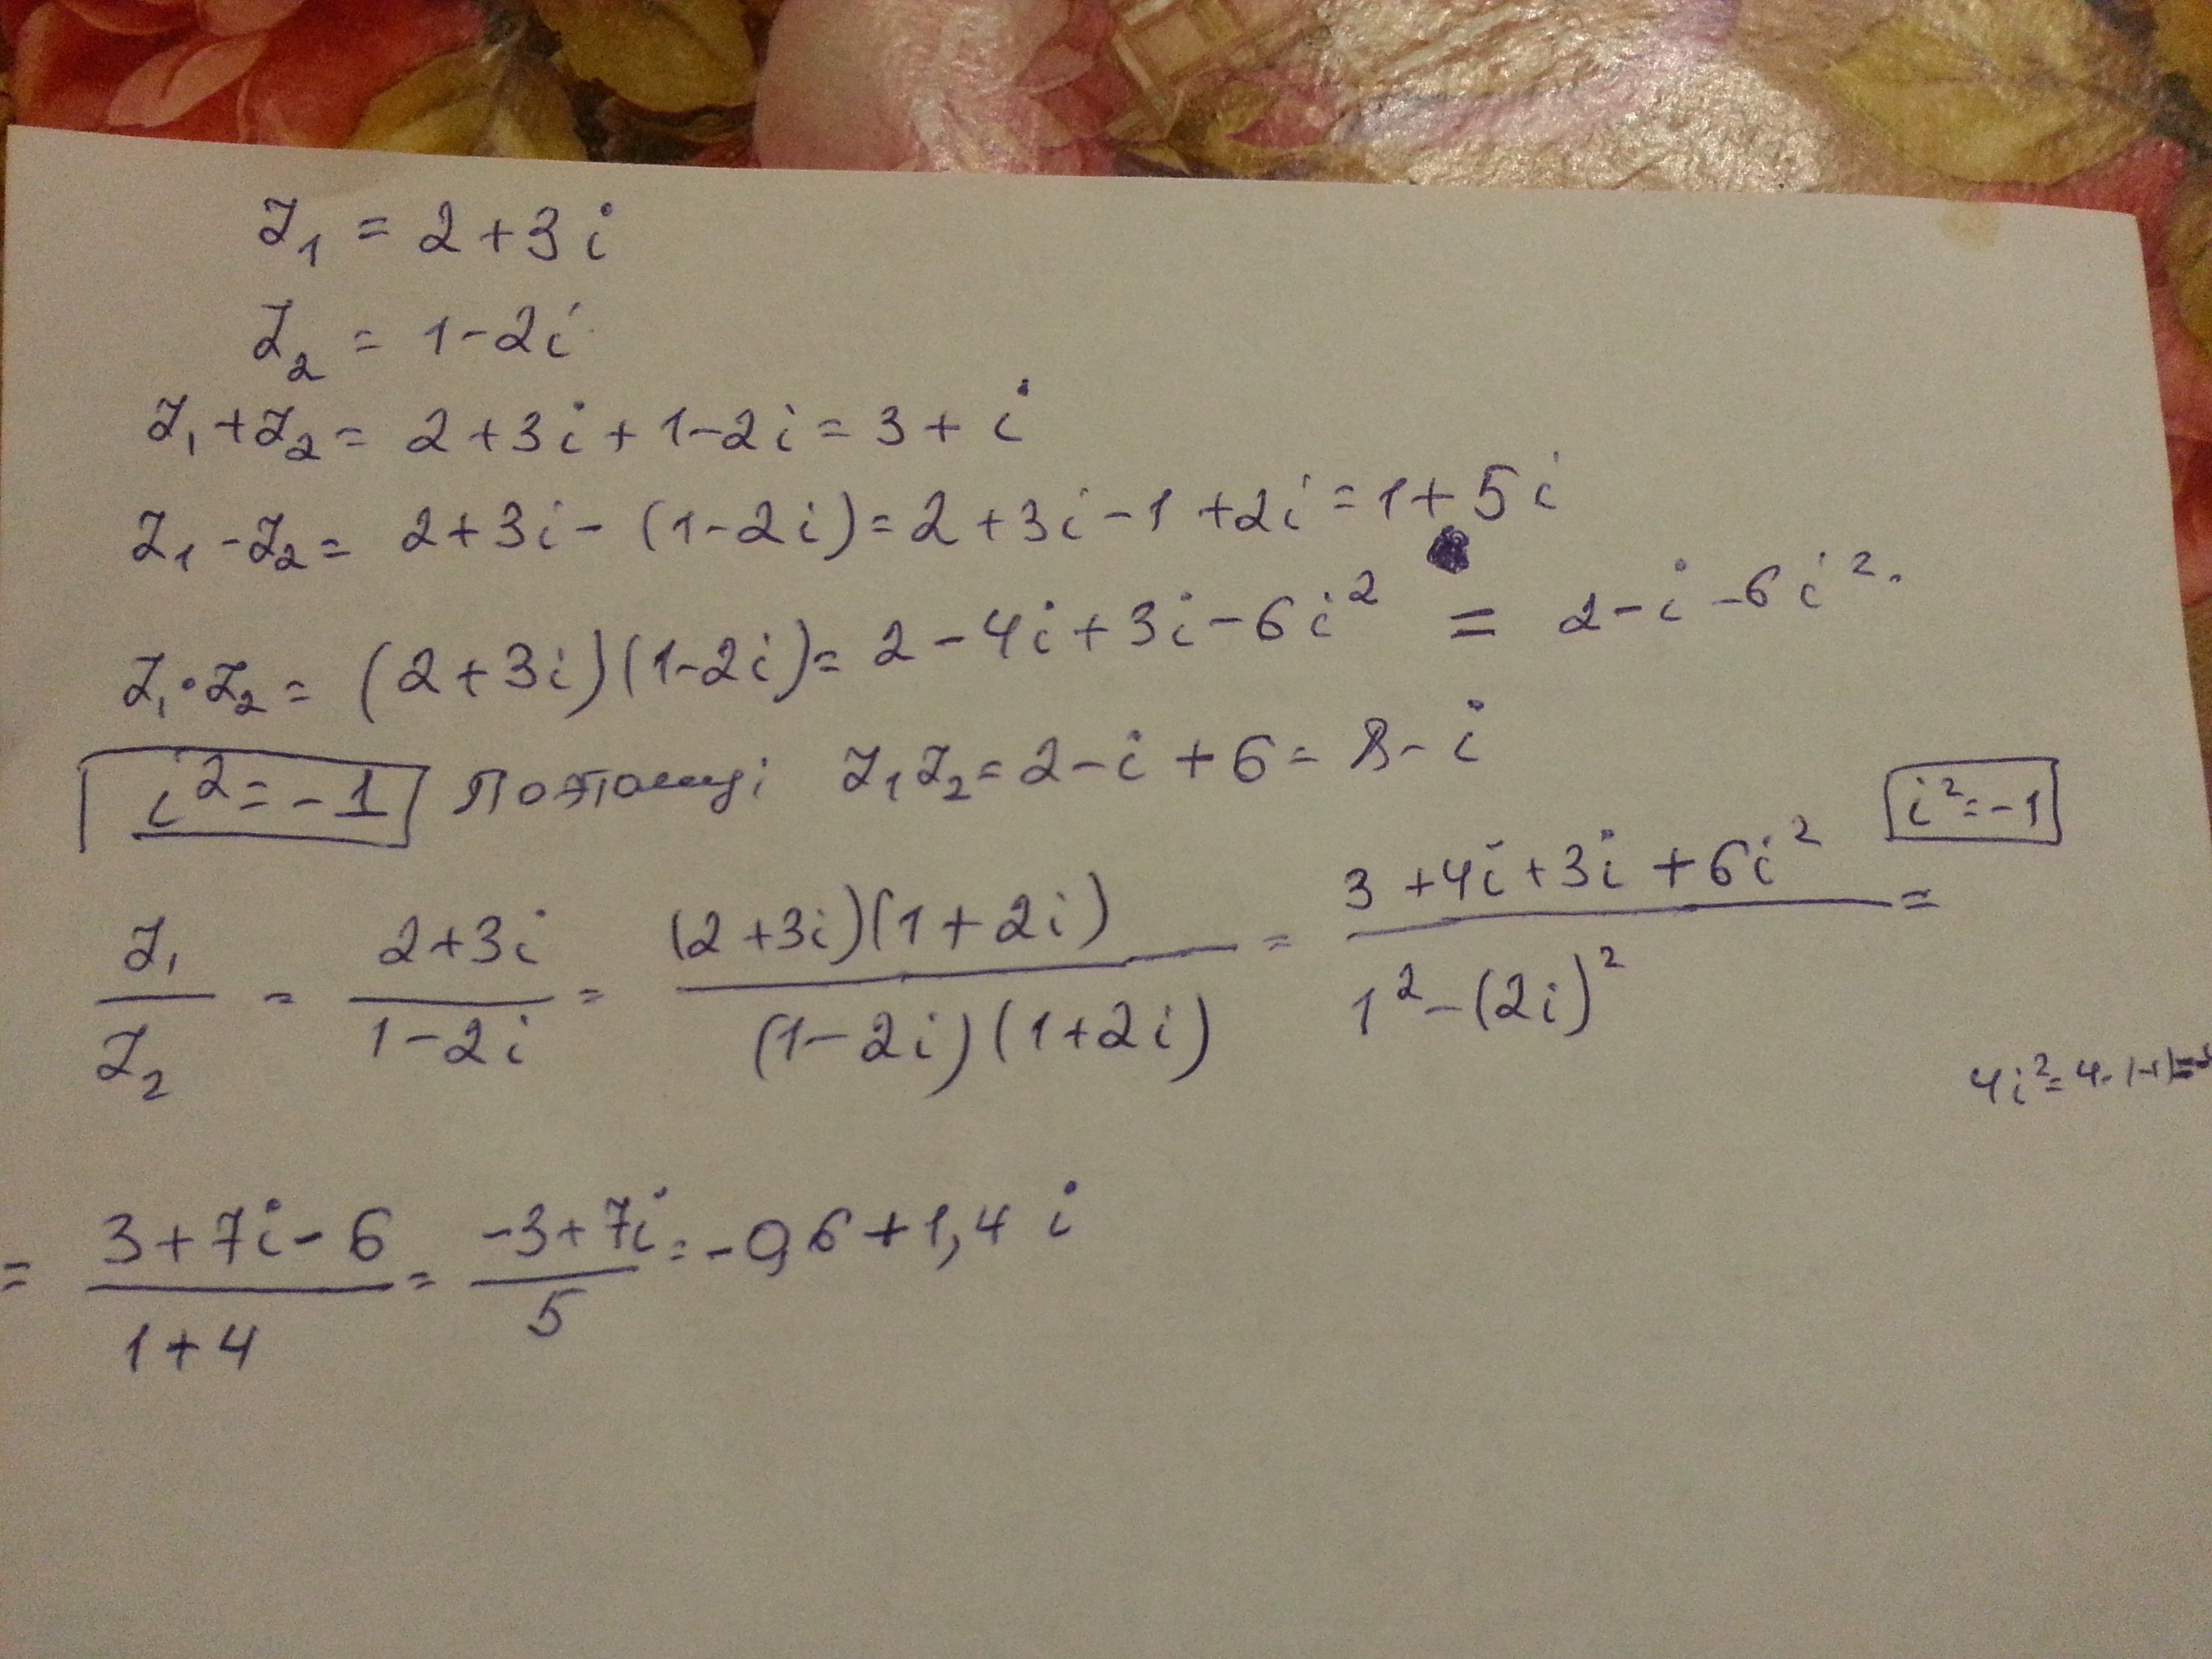 z₁ = 2+3i
z₂ = 1-2i
z₁+z₂= 2+3i+1-2i=3+i
z₁-z₂= 2+3i-(1-2i)=2+3i-1+2i=1+5i
z₁·z₂= (2+3i)(1-2i)=2-4i+3i-6i² = 2-i-6i².
i²=-1 Поэтому: z₁z₂=2-i+6=8-i
i²=-1
z₁/z₂ = (2+3i)/(1-2i) = ((2+3i)(1+2i))/((1-2i)(1+2i)) = (3+4i+3i+6i²)/(1²-(2i)²) =
4i²=4·(-1)=
= (3+7i-6)/(1+4) = (-3+7i)/5 = -0,6+1,4i